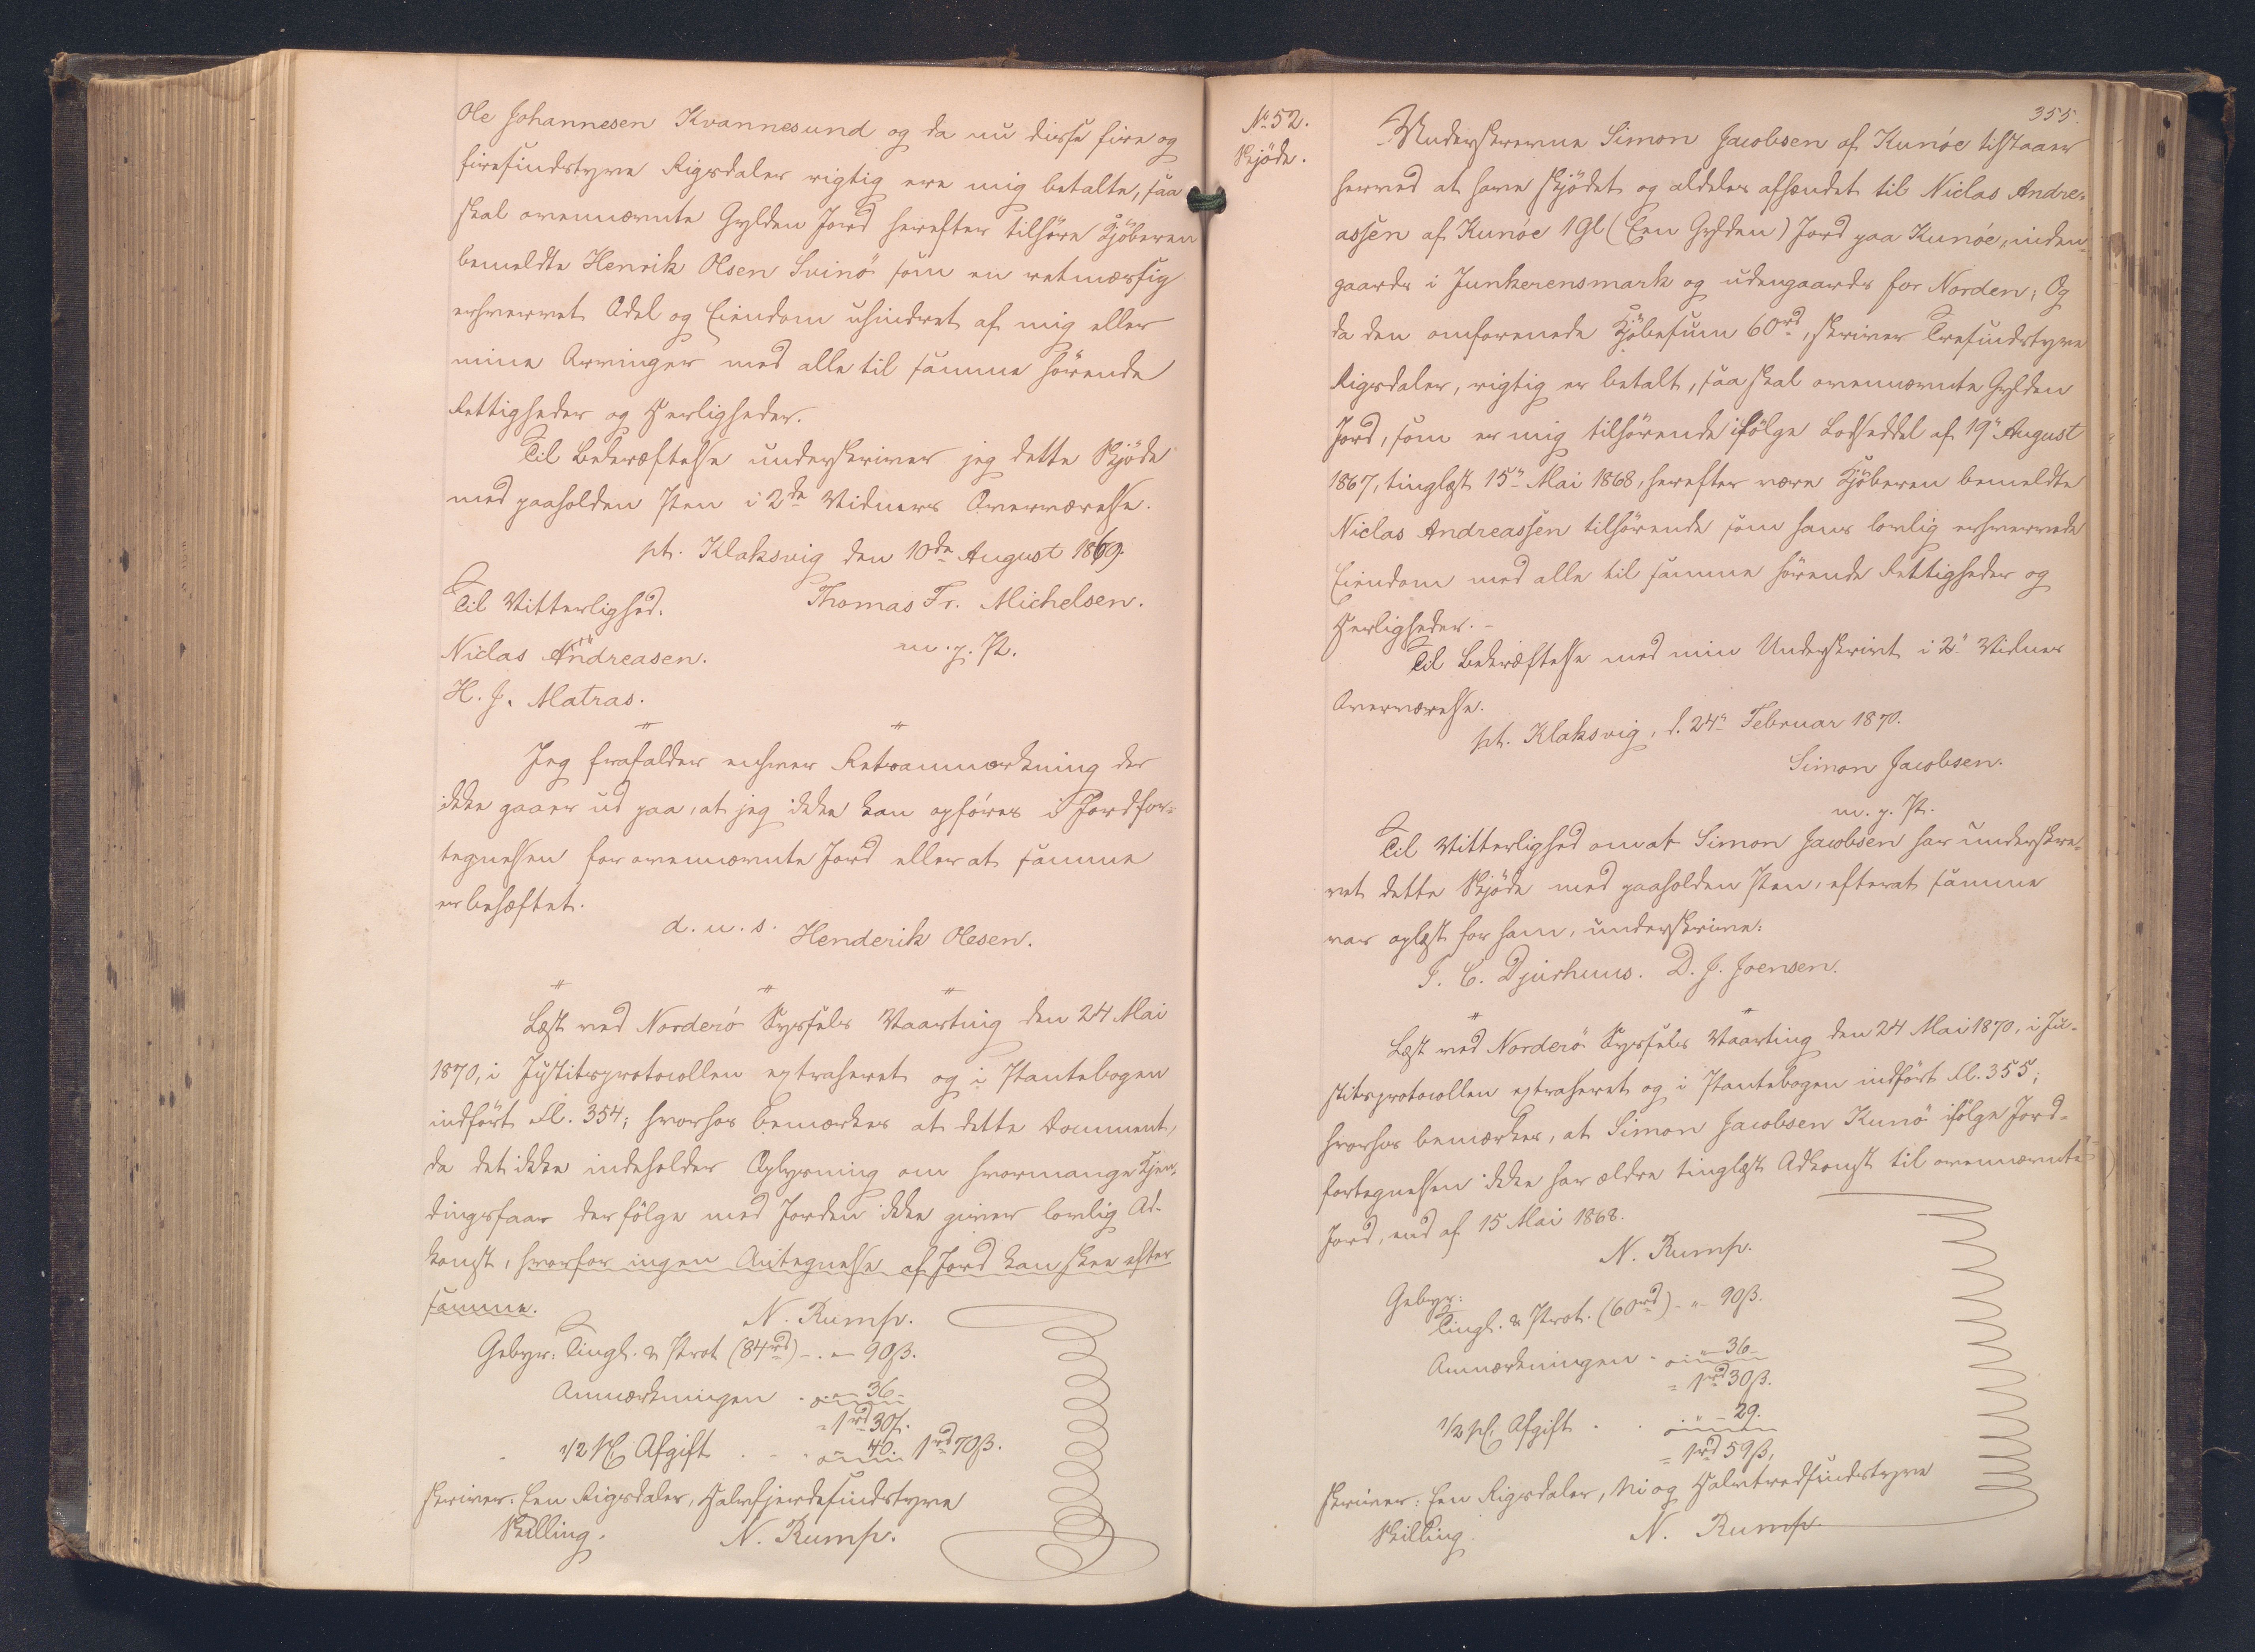 Ole Johannesen Kvannesund og da nu disse fire og
firesindstyve Rigsdaler rigtig ere mig betalte, saa
skal ovennævnte Gylden Jord herefter tilhøre Kjøberen
bemeldte Henrik Olsen Svinø som en retmæssig
erhvervet Odel og Eiendom uhindret af mig eller
mine Arvinger med alle til samme hørende
Rettigheder og Herligheder.
Til Bekræftelse underskriver jeg dette Skjøde
med paaholden Pen i 2de Vidners Overværelse.
pt. Klaksvig den 10de August 1869.
Til Vitterlighed. Thomas Fr. Michelsen.
Niclas Andreasen. m. p. P.
H. J. Matras.
Jeg frafalder enhver Retsanmærkning der
ikke gaaer ud paa, at jeg ikke kan opføres i Jordfor-
tegnelsen for ovennævnte Jord eller at samme
er behæftet.
d. u. s. Henderik Olesen.
Læst ved Norderø Syssels Vaarting den 24 Mai
1870, i Justitsprotocollen extraheret og i Pantebogen
indført Fl. 354; hvorhos bemærkes at dette Document,
da det ikke indeholder Oplysning om hvormange Kjen-
dingsfaar der følge med Jorden ikke giver lovlig Ad-
komst, hvorfor ingen Antegnelse af Jord kan skee efter
samme. N. Rump.
Gebyr: Tingl. & Prot (84rd) - . - 90ß.
Anmærkningen . " - 36 -
= 1rd 30ß.
1/2 pCt Afgift . . . - 40. 1rd 70ß.
skriver: Een Rigsdaler, Halvfjerdesindstyve
Skilling. N. Rump.
355.
No 52.
Skjøde.
Underskrevne Simon Jacobsen af Kunøe tilstaaer
herved at have skjødet og aldeles afhændet til Niclas Andre-
assen af Kunøe 1 Gl (Een Gylden) Jord paa Kunøe, inden-
gaards i Junkerensmark og udengaards for Norden; Og
da den omforenede Kjøbesum 60rd, skriver Tresindstyve
Rigsdaler, rigtig er betalt, saa skal ovennævnte Gylden
Jord, som er mig tilhørende ifølge Lodseddel af 19" August
1867, tinglæst 15" Mai 1868, herefter være Kjøberen bemeldte
Niclas Andreassen tilhørende som hans lovlig erhvervede
Eiendom med alle til samme hørende Rettigheder og
Herligheder. -
Til Bekræftelse med min Underskrivt i 2" Vidner
Overværelse.
pt. Klaksvig, d. 24" Februar 1870.
Simon Jacobsen.
m. p. P.
Til Vitterlighed om at Simon Jacobsen har underskre-
vet dette Skjøde med paaholden Pen, efterat samme
var oplæst for ham, underskrive:
J. C. Djurhuus. D. J. Joensen.
Læst ved Norderø Syssels Vaarting den 24 Mai 1870, i Ju-
stitsprotocollen extraheret og i Pantebogen indført Fl. 355;
hvorhos bemærkes, at Simon Jacobsen Kunø ifølge Jord-
fortegnelsen ikke har ældre tinglæst Adkomst til ovennævnte
Jord, end af 15 Mai 1868.
N. Rump.
Gebyr:
Tingl. & Prot. (60rd) - " - 90ß.
Anmærkningen - " - 36 -
= 1rd 30ß.
1/2 pCt. Afgift . . " - 29.
= 1rd 59ß,
skriver: Een Rigsdaler, Ni og Halvtredsindstyve
Skilling. N. Rump.